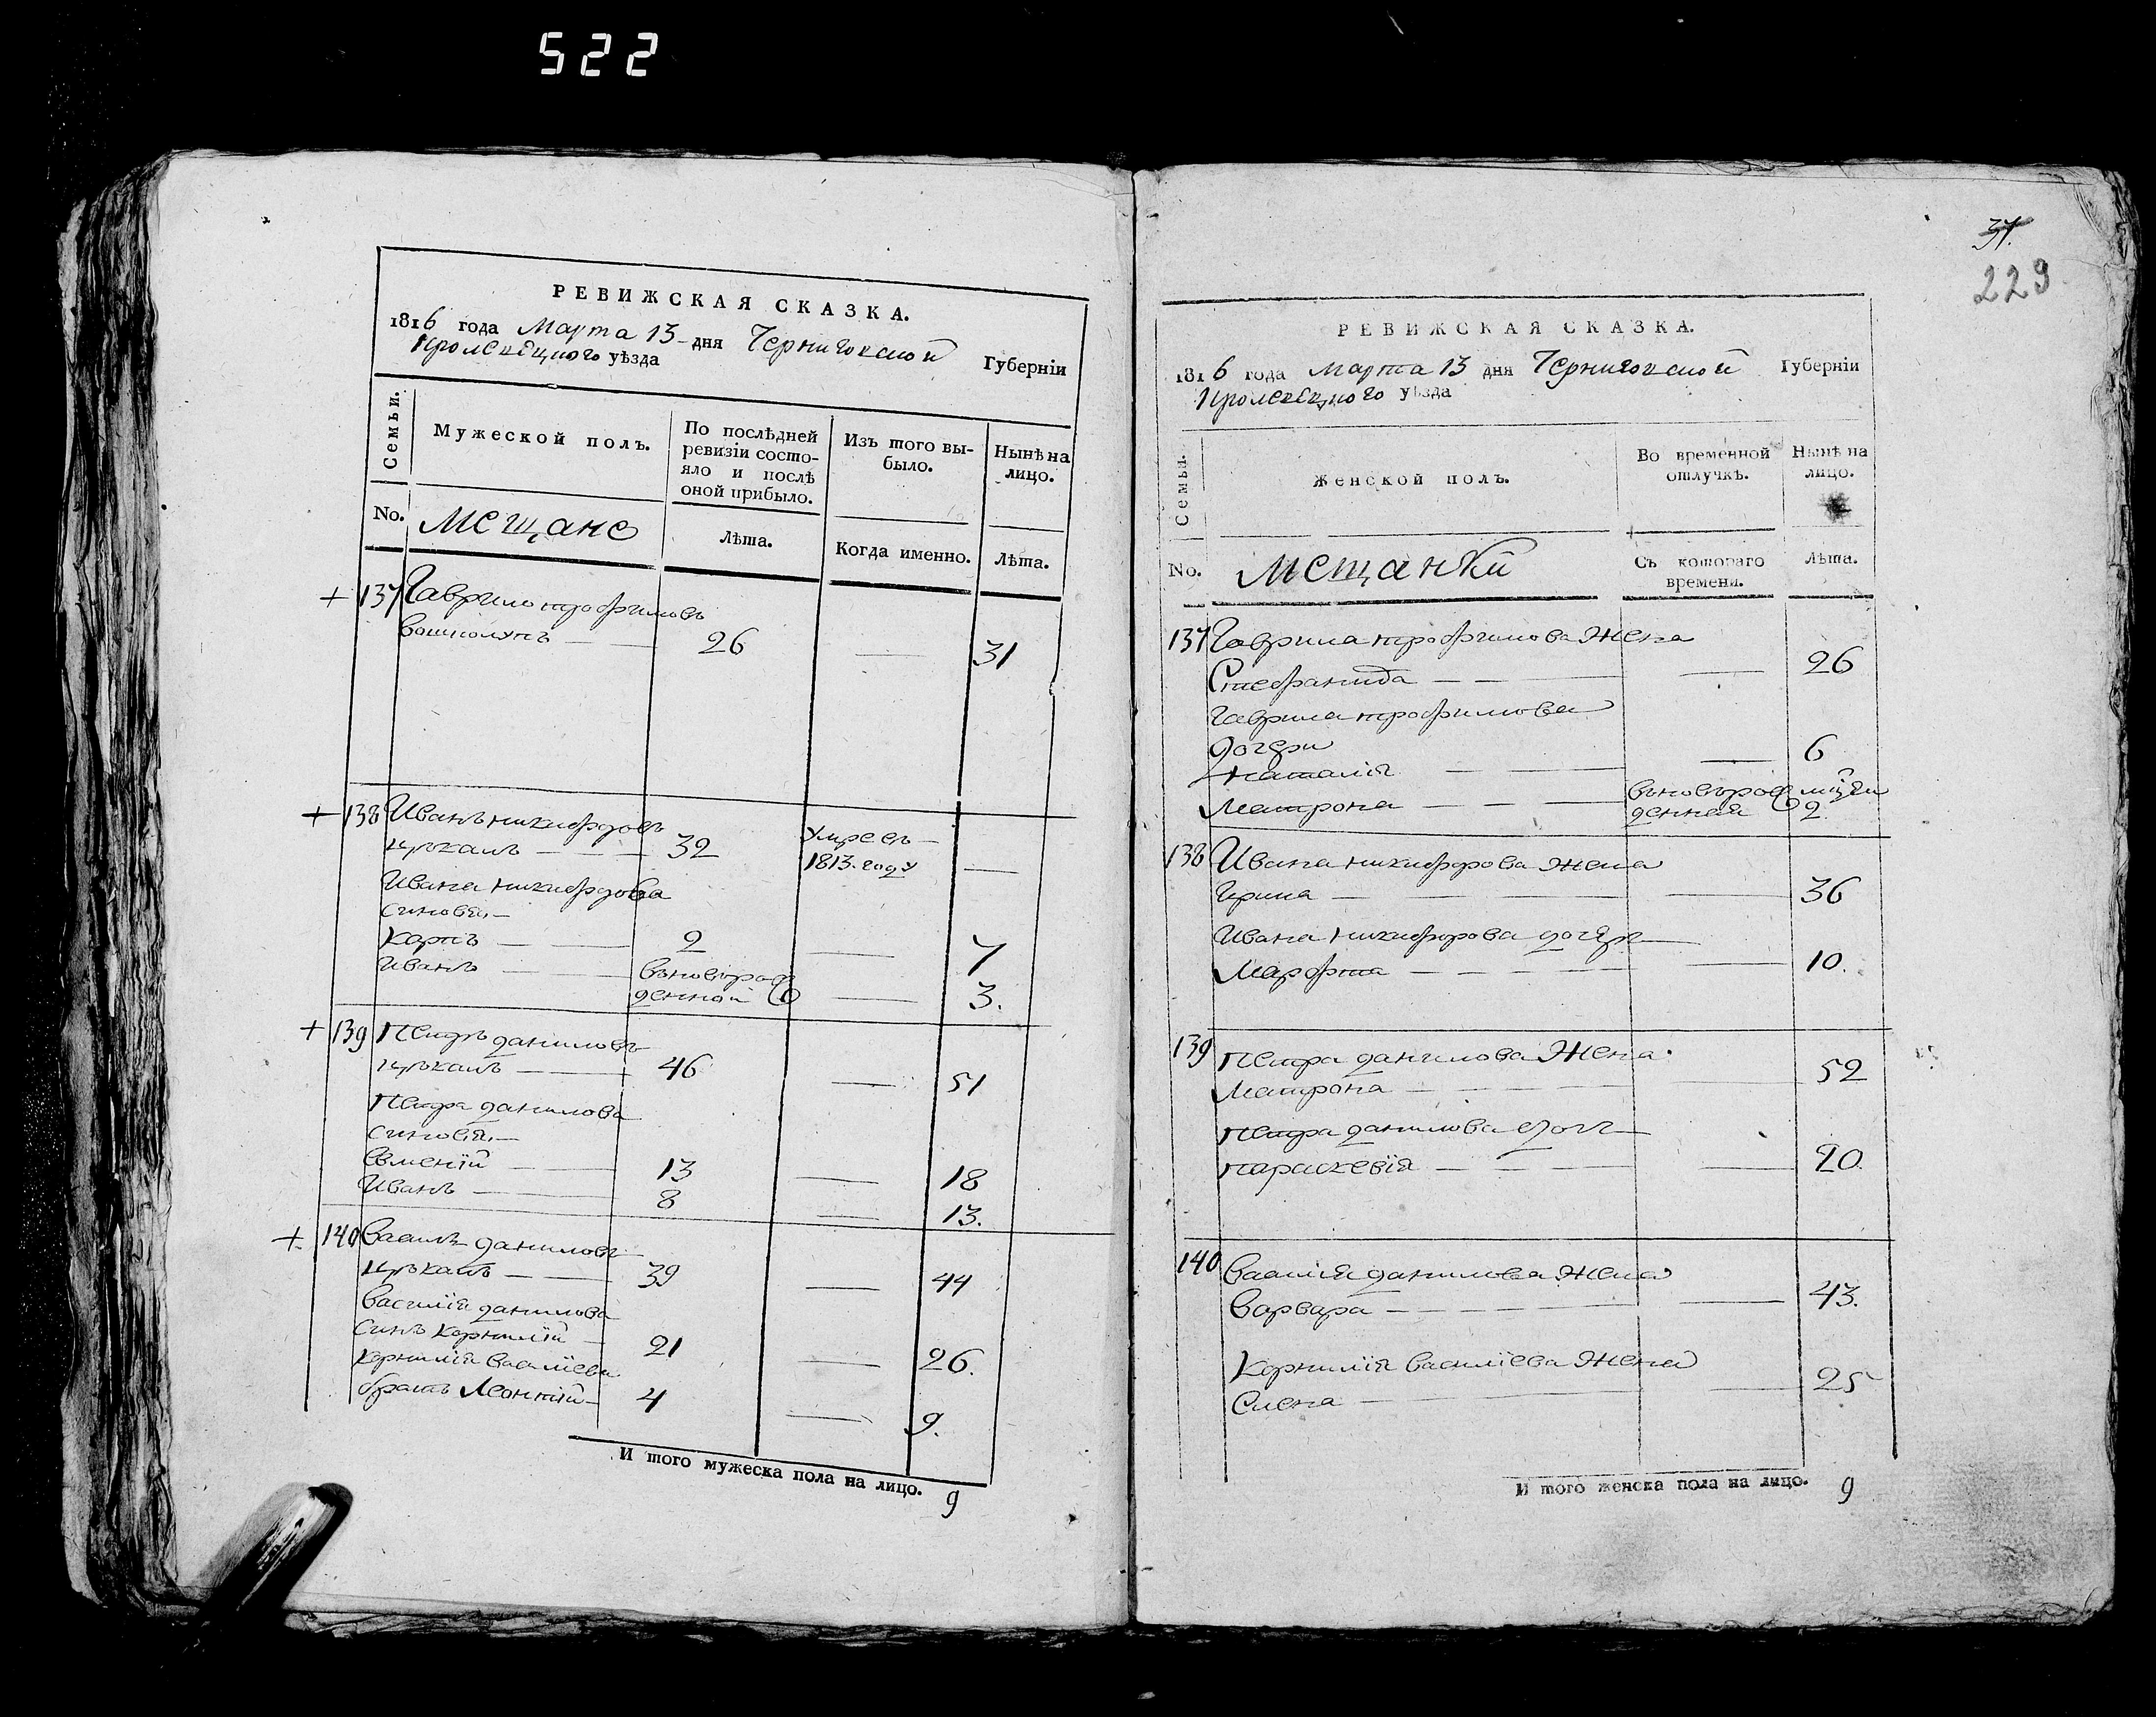 522
РЕВИЖСКАЯ СКАЗКА.
1816 года Марта 13 дня Черниговской Губерніи
Кролевецкого уѣзда
Семьи.
Мужеской полъ.
По послѣдней ревизіи состо-
яло и послѣ
оной прибыло.
Изъ того вы-
было.
Нынѣ на
лицо.
No.
Мещане
Лѣта.
Когда именно.
Лѣта.
+ 137 Гаврило трофимовъ
26 31
+ 138 Иванъ никифоровъ
цѣкалъ 32 Умре въ
1813. году
Ивана никифорова
синовья
Карпъ 2 7
Иванъ вьноворож
денной 3.
+ 139 Петръ даниловъ
цѣкалъ 46 51
Петра данилова
синовья
Евменій 13 18
Иванъ 8 13.
+ 140 Василь даниловъ
цѣкалъ 39 44
Василія данилова
синъ Корнилій 21 26.
Корнилія василіева
братъ Леонтій 4 9.
И того мужеска пола на лицо. 9
37.
229
РЕВИЖСКАЯ СКАЗКА.
1816 года Марта 13 дня Черниговской Губерніи
Кролевецкого уѣзда
Семьи.
Женской полъ.
Во временной
отлучкѣ.
Нынѣ на
лицо.
No.
Мещанки
Съ котораго
времени.
Лѣта.
137 Гаврила трофимова Жена
Стефанида 26
Гаврила трофимова
дочери
Наталія 6
Матрона вьноворож
денная 2
138 Ивана никифорова жена
Ирина 36
Ивана никифорова дочерь
Марфта 10.
139 Петра данилова Жена
Матрона 52
Петра данилова дочь
параскевія 20.
140 Василія данилова Жена
Варвара 43.
Корнилія василіева Жена
Елена 25
И того женска пола на лицо. 9